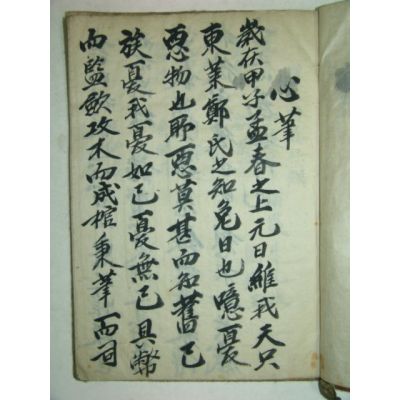 心筆
歲在甲子孟春之上元日維我天只
東萊鄭氏之知免日也噫憂
惡物也耶惡莫甚而知舊已
族憂我憂如已憂無已具幣
而監歛攻木而成棺秉筆而司